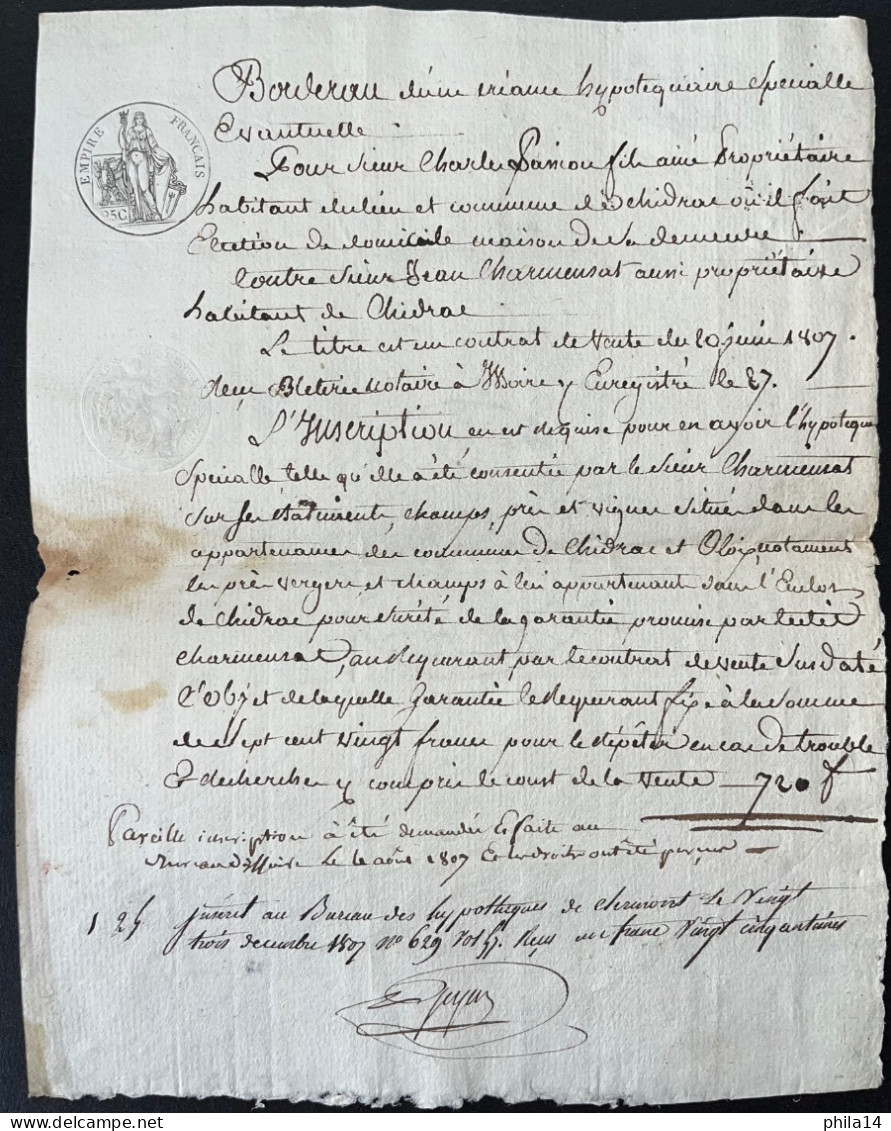 EMPIRE FRANÇAIS
25C
Borderau d'une créance hypotequaire Specialle
Evantuelle
Pour Sieur Charles fils ainé Propriétaire
habitant du lieu et commune de chidrac où il fait
Election de domicile maison de Sa demeure
Contre Sieur Jean Charmensat aussi propriétaire
habitant de Chidrac
Le titre est un contrat de vente du 20 juin 1807.
notaire à Enregistré le 27.
L'Inscription en est requise pour en avoir l'hypoteque
Specialle telle qu'elle a été consentie par le Sieur Charmensat
Sur ses Batiments, champs, près et vignes situés dans les
appartenances des communes de Chidrac et notament
les près vergers et champs à lui appartenant dans l'Enclos
de Chidrac pour Sureté de la garantie promise par ledit
charmensat, au Requerant par le contrat de vente Susdaté
l'Objet de laquelle Garantie le Requerant fixe à la Somme
de Sept cent vingt francs pour le en cas de trouble
Et y compris le coust de la vente 720 f
Pareille inscription à été demandée Et faite au
Bureau d'Issoire Le août 1807 Et les droits ont été perçus
1 25 Inscrit au Bureau des hypothèques de clermont Le Vingt
trois decembre 1807 N° 629 Vol Reçu un franc Vingt cinq centimes
phila14